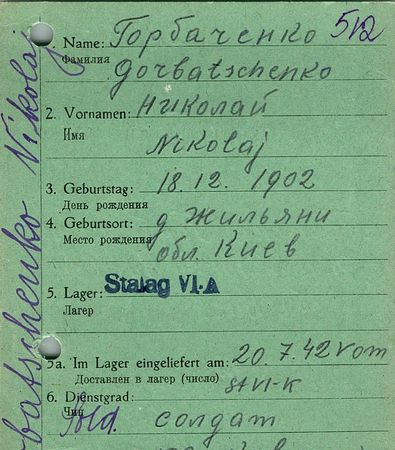 1. Name: Горбаченко 512
Фамилия Gorbatschenko
2. Vornamen: Николай
Имя Nikolaj
3. Geburtstag: 18.12. 1902
День рождения
4. Geburtsort: д Жильяни
Место рождения обл. Киев
5. Lager: Stalag VI-A
Лагерь
5a. Im Lager eingeliefert am: 20.7.42 vom
Доставлен в лагерь (число) St VI-K
6. Dienstgrad:
Чин Sold. солдат
batschenko Nikolaj